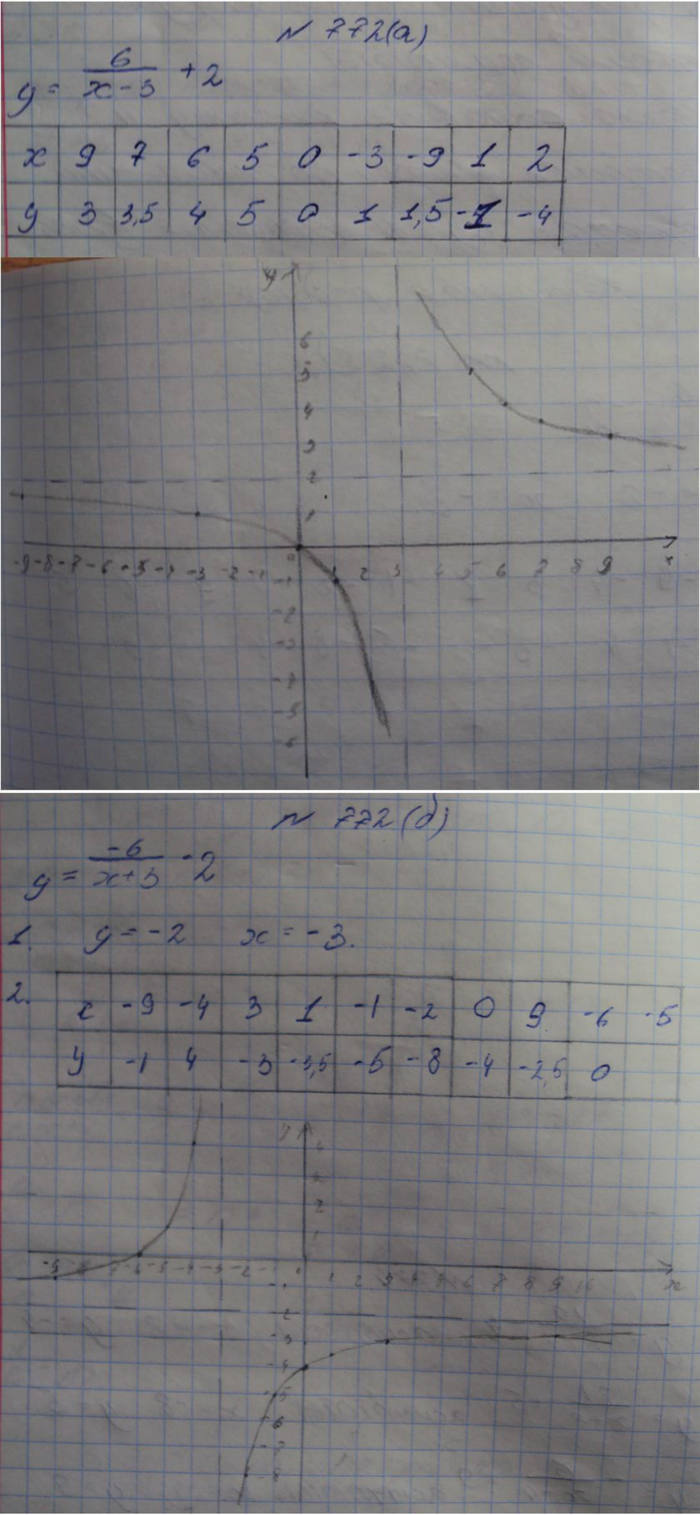 N 772(а)
y = 6/(x-3) + 2
x 9 7 6 5 0 -3 -9 1 2
y 3 3,5 4 5 0 1 1,5 -1 -4
y
6
5
4
3
2
1
-9 -8 -7 -6 -5 -4 -3 -2 -1 0 1 2 3 4 5 6 7 8 9 x
-1
-2
-3
-4
-5
-6
N 772(б)
y = -6/(x+3) - 2
1. y = -2 x = -3.
2. x -9 -4 3 1 -1 -2 0 9 -6 -5
y -1 4 -3 -3,5 -5 -8 -4 -2,5 0
y
4
3
2
1
1 2 3 4 5 6 7 8 9 10 x
-1
-2
-3
-4
-5
-6
-7
-8